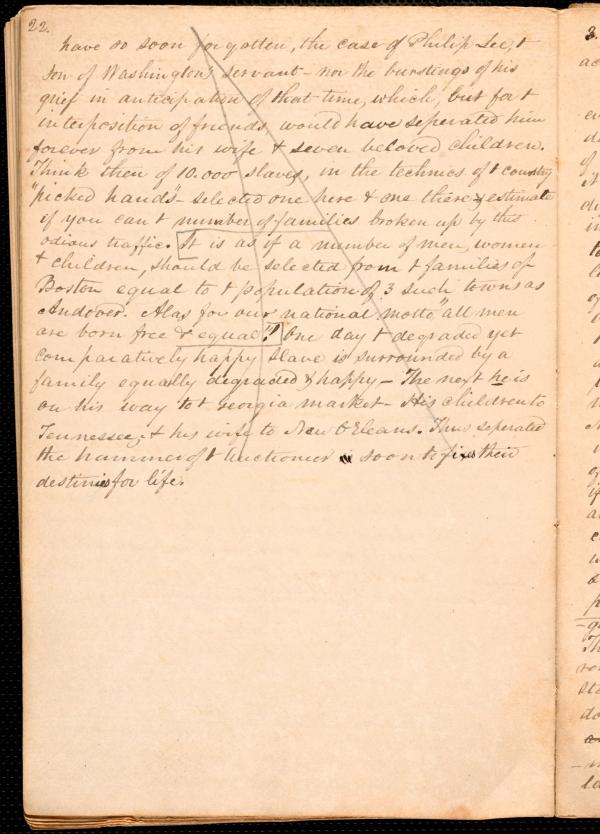 22.
have so soon forgotten, the case of Philip Lee, t
son of Washington's servant - nor the burstings of his
grief in anticipation of that time, which, but for t
interposition of friends, would have seperated him
forever from his wife & seven beloved children.
Think then of 10.000 slaves, in the technics of t country
"picked hands" - selected one here & one there & estimate
if you can t number of families broken up by this
odious traffic. [It is as if a number of men, women
& children, should be selected from t families of
Boston equal to t population of 3 such towns as
Andover. Alas for our national motto "all men
are born free & equal"!] One day t degraded yet
comparatively happy slave is surrounded by a
family equally degraded & happy - The next he is
on his way to t Georgia market - His children to
Tennessee, & his wife to New Orleans. Thus seperated
the hammer of t Auctioneer is soon to fix their
destinies for life.
3.